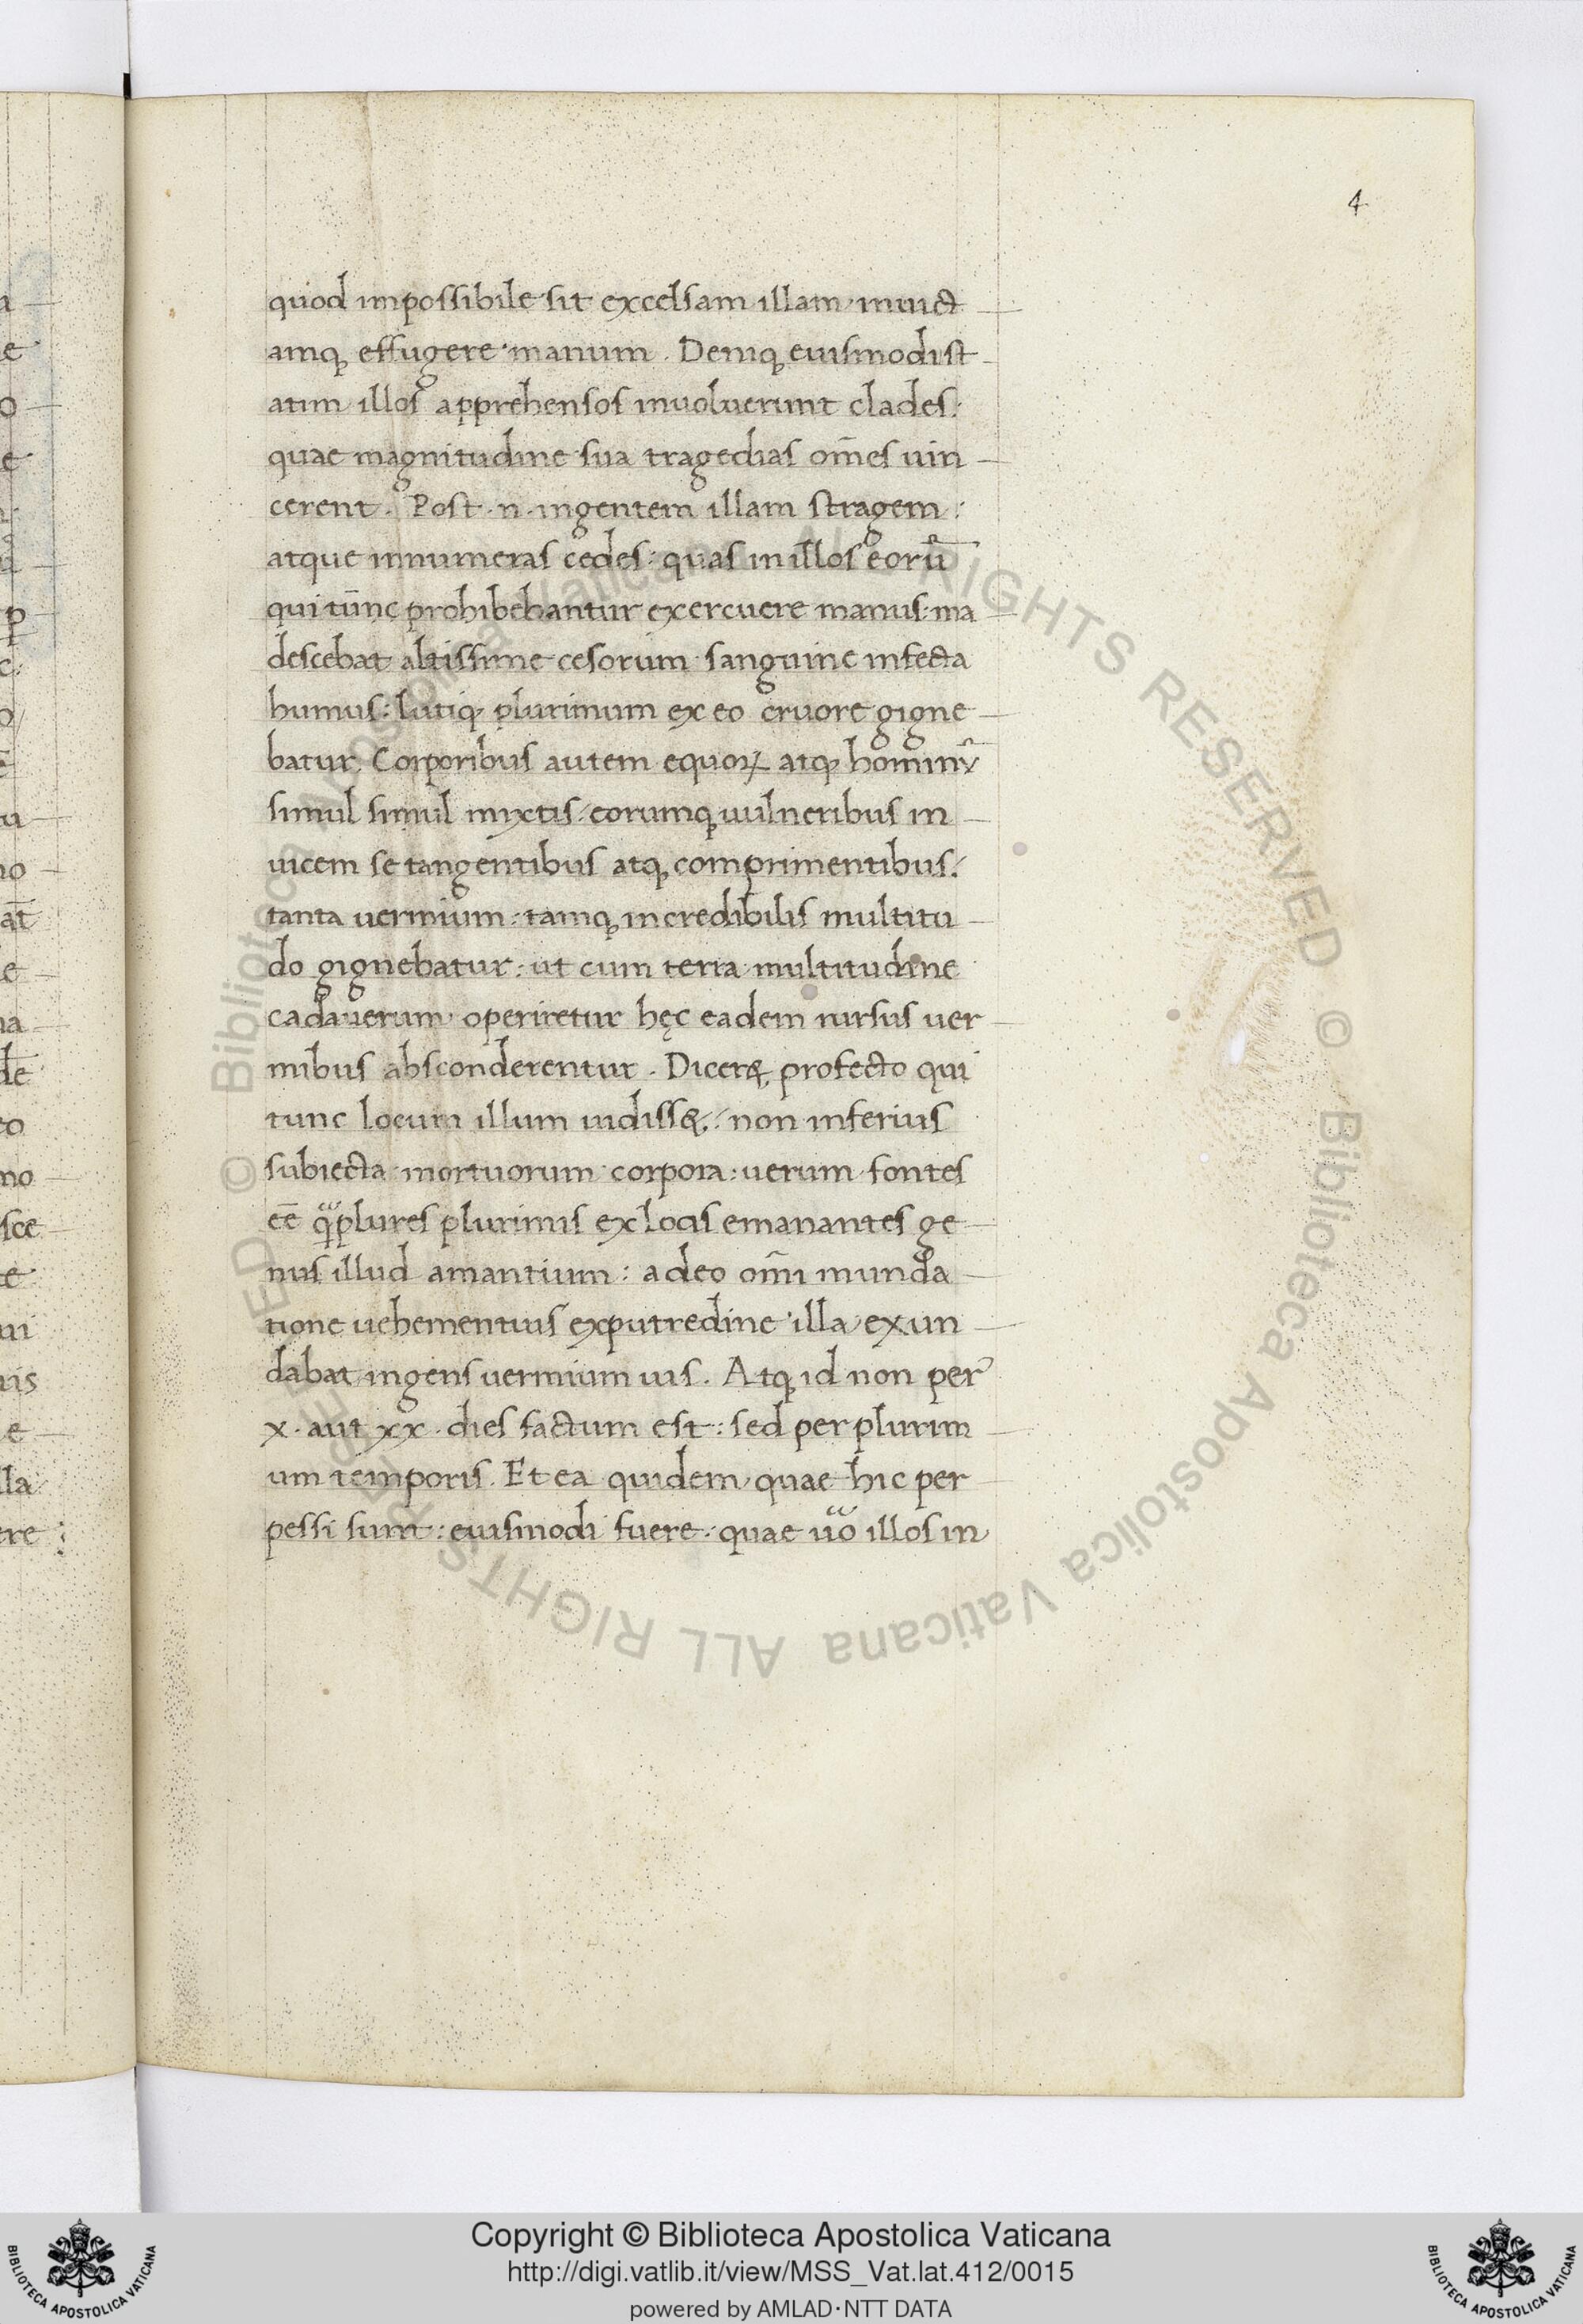 4
quod impossibile sit excelsam illam inuict
amq; effugere manum. Deniq; euismodi st
atim illos apprehensos inuoluerunt clades:
quae magnitudine sua tragedias om̄es uin
cerent. Post .n. ingentem illam stragem:
atque innumeras cedes: quas in illos eorū
qui tūnc prohibebantur exercuere manus: ma
descebat altissime cesorum sanguine infecta
humus: lutiq; plurimum ex eo cruore gigne
batur. Corporibus autem equoꝝ atq; hominū
simul simul mixtis: eorumq; uulneribus in
uicem se tangentibus atq; comprimentibus:
tanta uermium: tamq; incredibilis multitu
do gignebatur: ut cum terra multitudine
cadauerum operiretur hęc eadem rursus uer
mibus absconderentur. Dicer&, profecto qui
tunc locum illum uidiss&: non inferius
subiecta mortuorum corpora: uerum fontes
eē qͣplures plurimis ex locis emanantes ge
nus illud amantium: adeo om̄i inunda
tione uehementius ex putredine illa exun
dabat ingens uermium uis. Atq; id non per
x. aut xx. dies factum est: sed per plurim
um temporis. Et ea quidem quae hic per
pessi sunt: euismodi fuere: quae uͦo illos in
© Biblioteca Apostolica Vaticana ALL RIGHTS RESERVED © Biblioteca Apostolica Vaticana ALL RIGHTS RESERVED
Copyright © Biblioteca Apostolica Vaticana
http://digi.vatlib.it/view/MSS_Vat.lat.412/0015
powered by AMLAD·NTT DATA
BIBLIOTECA APOSTOLICA VATICANA
BIBLIOTECA APOSTOLICA VATICANA